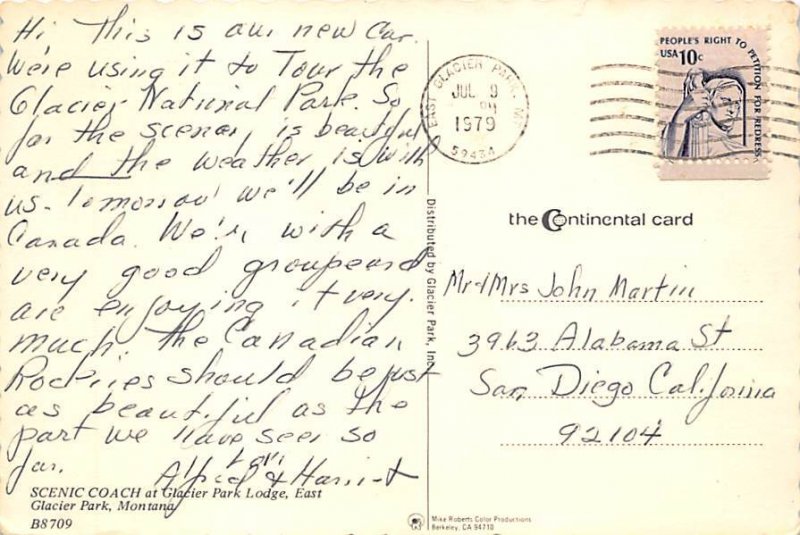 Hi This is our new Car.
We're using it to Tour the
Glacier National Park. So
far the scenery is beautiful
and the weather is with
us. Tomorrow we'll be in
Canada. We're with a
very good group and
are enjoying it very
much. The Canadian
Rockies should be just
as beautiful as the
part we have seen so
far.
Love
Alfred & Harriet
SCENIC COACH at Glacier Park Lodge, East
Glacier Park, Montana
B8709
Distributed by Glacier Park, Inc.
EAST GLACIER PARK, MT
JUL 9
PM
1979
59434
PEOPLE'S RIGHT TO PETITION FOR REDRESS
USA 10c
the Continental card
Mr & Mrs John Martin
3963 Alabama St
San Diego California
92104
Mike Roberts Color Productions
Berkeley, CA 94710